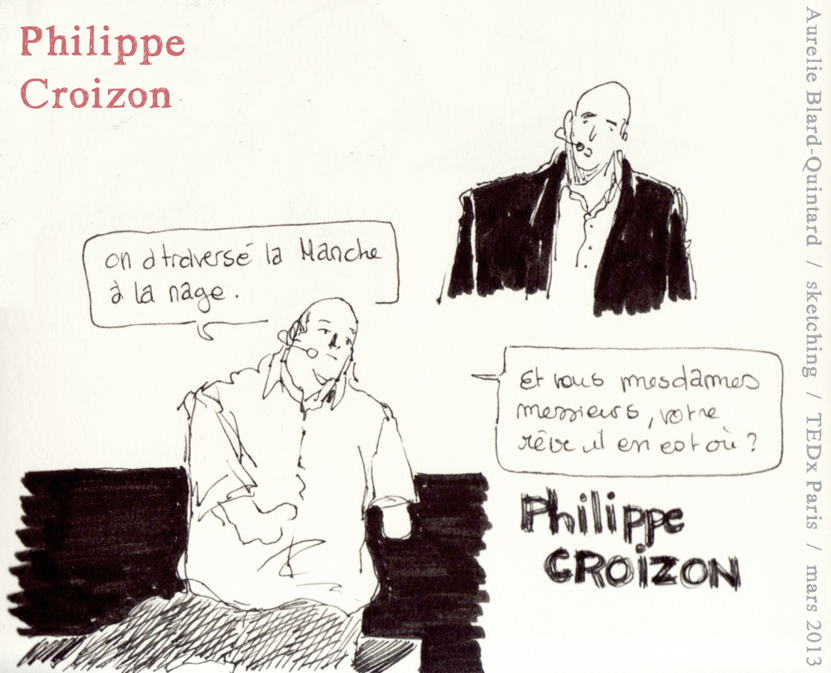 Philippe
Croizon
on a traversé la Manche
à la nage.
Et vous mesdames
messieurs, votre
rêve il en est où ?
Philippe
CROIZON
Aurelie Blard-Quintard / sketching / TEDx Paris / mars 2013